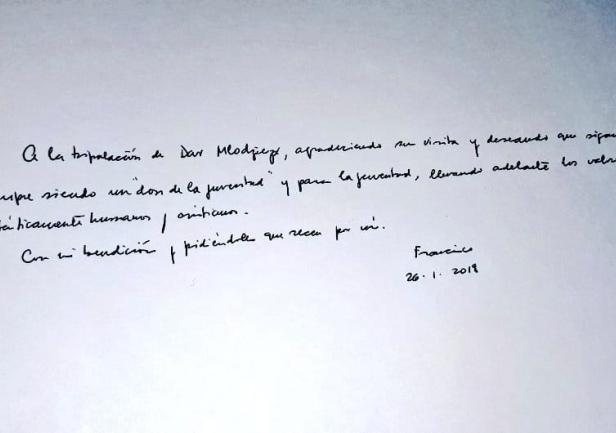 A la tripulación de Dar Mlodziezy, agradeciendo su visita y deseando que sigan
mpre siendo un "don de la juventud" y para la juventud, llevando adelante los valor
ticamente humanos y cristianos.
Con mi bendición y pidiéndoles que recen por mí.
Francisco
26.1.2019